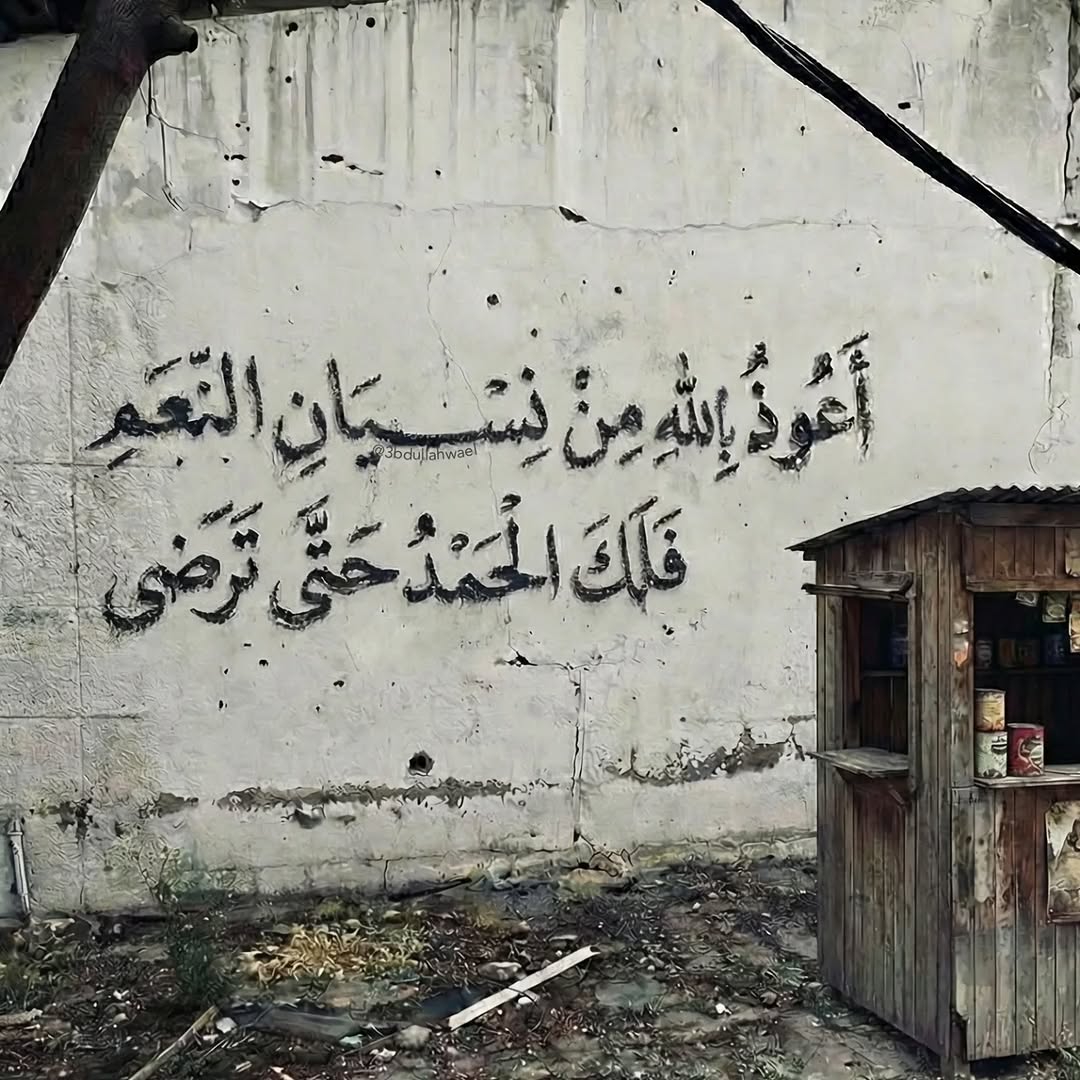 أَعُوذُ بِاللهِ مِنْ نِسْيَانِ النِّعَمِ
@3bdullahwael
فَلَكَ الْحَمْدُ حَتَّى تَرَضَى